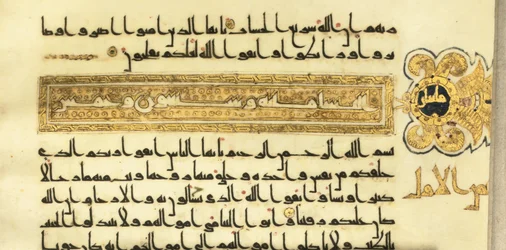 عند ربهم ان الله سريع الحساب يايها الذين امنوا اصبروا وصا
بروا ورابطوا واتقوا الله لعلكم تفلحون
بسم الله الرحمن الرحيم يايها الناس اتقوا ربكم الذي
خلقكم من نفس واحدة وخلق منها زوجها وبث منهما رجالا
كثيرا ونسا واتقوا الله الذي تسالون به والارحام ان الله
كان عليكم رقيبا واتوا اليتمى اموالهم ولا تتبدلوا الخبيث
بالطيب ولا تاكلوا اموالهم الى اموالكم انه كان حوبا